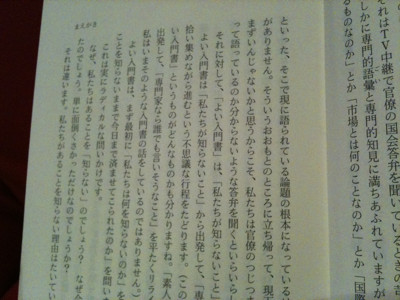 まえがき
それはTV中継で官僚の国会答弁を聞いているときの
しかに専門的語彙と専門的知見に満ちあふれていますが
るものなのか」とか「市場とは何のことなのか」とか「国際
といった、そこで現に語られている論題の根本になっている
がありません。そういうおおもとのところに立ち帰って、現
まずいんじゃないかと思うからこそ、私たちは官僚のつじつま
って語っているのか分からないような答弁を聞くといらいら
それに対して、「よい入門書」は、「私たちが知らないこと」
よい入門書は「私たちが知らないこと」から出発して、「専門
拾い集めながら進むという不思議な行程をたどります。この
い入門書」というものがどんなものかも分かりますね。「素人
出発して、「専門家なら誰でも言いそうなこと」を平たくリス
私はいまそのような入門書の話をしているのではありません。)
よい入門書は、まず最初に「私たちは何を知らないのか」を
ことを知らないままで今日まで済ませてこられたのか」を問い
これは実にラディカルな問いかけです。
なぜ、私たちはあることを「知らない」のでしょう?なぜ今
たのでしょう。単に面倒くさかっただけなのでしょうか?
それは違います。私たちがあることを知らない理由はたいてい